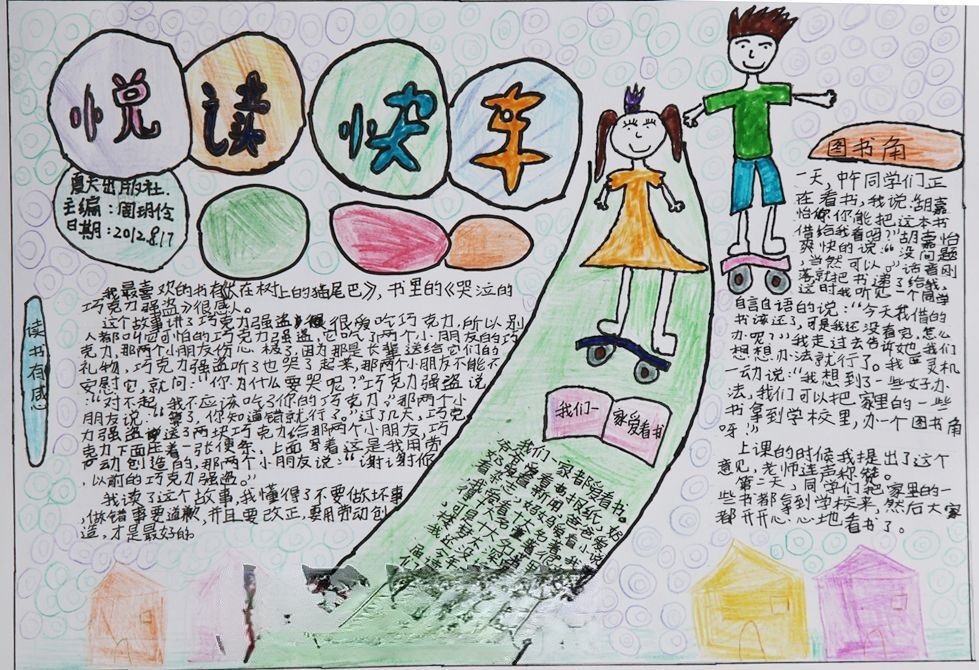 悦读快车
夏天出版社.
主编：周玥伶
日期：2012.8.17
读书有感
我最喜欢的书有《长在树上的猫尾巴》，书里的《哭泣的
巧克力强盗》很感人。
这个故事讲了巧克力强盗很爱吃巧克力，所以别
人都叫它可怕的巧克力强盗，它吃了两个小朋友的巧
克力，那两个小朋友伤心极了，因为那是长辈送给它们的
礼物，巧克力强盗听了也哭了起来，那两个小朋友不能不
安慰它，就问：“你为什么要哭呢？”巧克力强盗说
：“对不起，我不应该吃了你的巧克力。”那两个小
朋友说：“算了，你知道错就行了。”过了几天，巧克
力强盗送了两块巧克力给那两个小朋友，巧克
力下面压着一张便条，上面写着这是我用劳
动创造的，那两个小朋友说：“谢谢你，
以前的巧克力强盗。”
我读了这个故事，我懂得了不要做坏事
，做错事要道歉，并且要改正，要用劳动创
造，才是最好的
我们一家爱看书
我们一家都爱看书。
图书角
一天，中午同学们正
在看书，我说：“胡嘉
怡，你能把这本书
借给我看吗？”胡嘉怡
爽快的说：“没问题
，当然可以。”话音刚
落就把书递了给我，
这时我听见一个同学
自言自语的说：“今天我借的
书该还了，可是我还没看完，怎么
办呢？”我走过去告诉她：“我们
想想办法就行了。我灵机
一动说：“我想到了一些好办
法，我们可以把家里的一些
书拿到学校里，办一个图书角
呀！”
上课的时候我提出了这个
意见，老师连声称赞。
第二天，同学们把家里的一
些书都拿到学校来，然后大家
都开开心心地看书了。